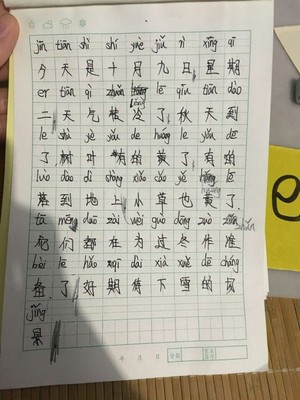 jīn tiān shì shí yuè jiǔ rì xīng qī
今天是十月九日星期
èr tiān qì zhuǎn lě qiū tiān dào
二天气转冷了秋天到
le shù yè yǒu de huáng le yǒu de
了树叶有的黄了有的
luò dào dì shàng xiǎo cǎo yě huáng le
落到地上小草也黄了
tā mēn dōu zài wèi guò dōng zuò zhǔn
它们都在为过冬作准
bèi le hǎo qī dài xià xuě de chǎng
备了好期待下雪的场
jǐng
景
年 月 日